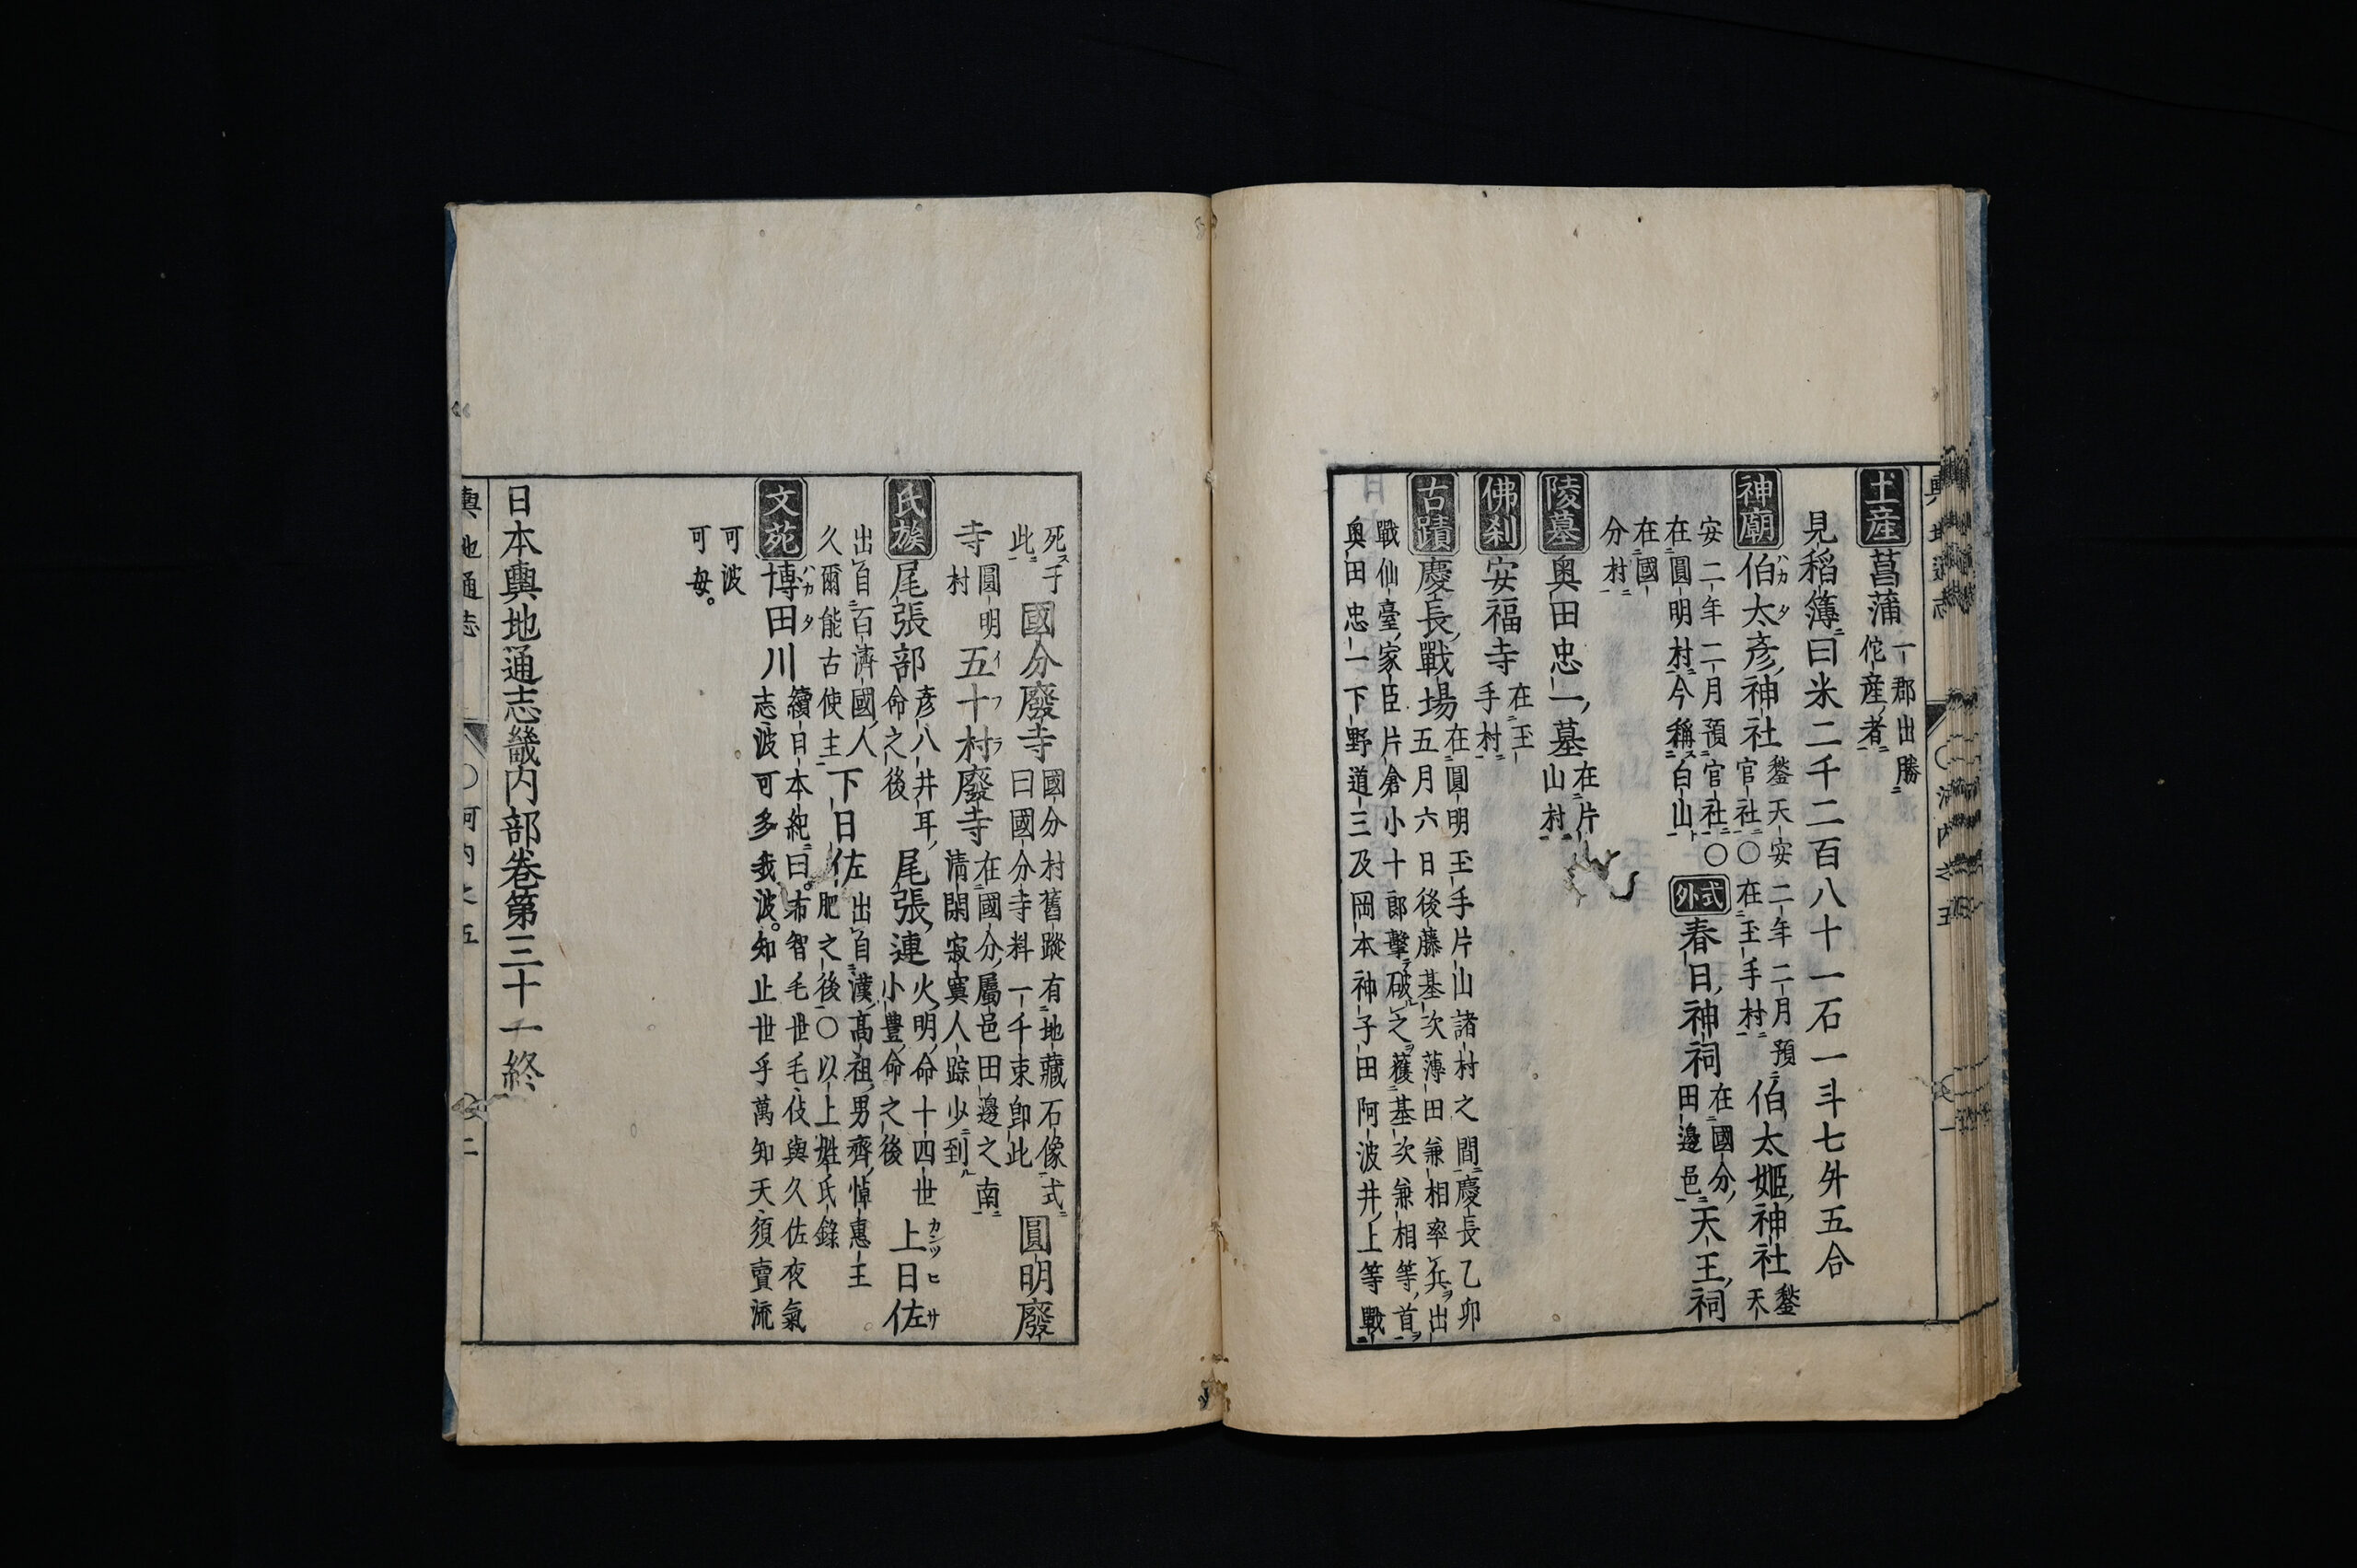 土産 菖蒲 一郡出勝佗産者
見稻簿曰米二千二百八十一石一斗七升五合
神廟 伯太彦神社 鍫天安二年二月預官社〇在玉手村 伯太姬神社 鍫天
安二年二月預官社〇在圓明村今稱白山 式外 春日神祠 在國分田邊邑 天王祠
在國分村
陵墓 奥田忠一墓 在片山村
佛刹 安福寺 在玉手村
古蹟 慶長戰場 在圓明玉手片山諸村之間慶長乙卯五月六日後藤基次薄田兼相率兵出
戰仙臺家臣片倉小十郎擊破之獲基次兼相等首奥田忠一下野道三及岡本神子田阿波井上等戰
死于此 國分廢寺 國分村舊蹤有地藏石像式曰國分寺料一千束卽此 圓明廢
寺 圓明村 五十村廢寺 在國分屬邑田邊之南淸閑寂寞人踪少到
氏族 尾張部 彦八井耳命之後 尾張連 火明命十四世小豐命之後 上日佐
出自百濟國人久爾能古使主 下日佐 出自漢高祖男齊悼惠王肥之後〇以上姓氏錄
文苑 博田川 續日本紀曰布智毛世毛伎與久佐夜氣志波可多我波知止世乎萬知天須賣流
可波可毋
日本輿地通志畿內部卷第三十一終
輿地通志 〇河內之五 二